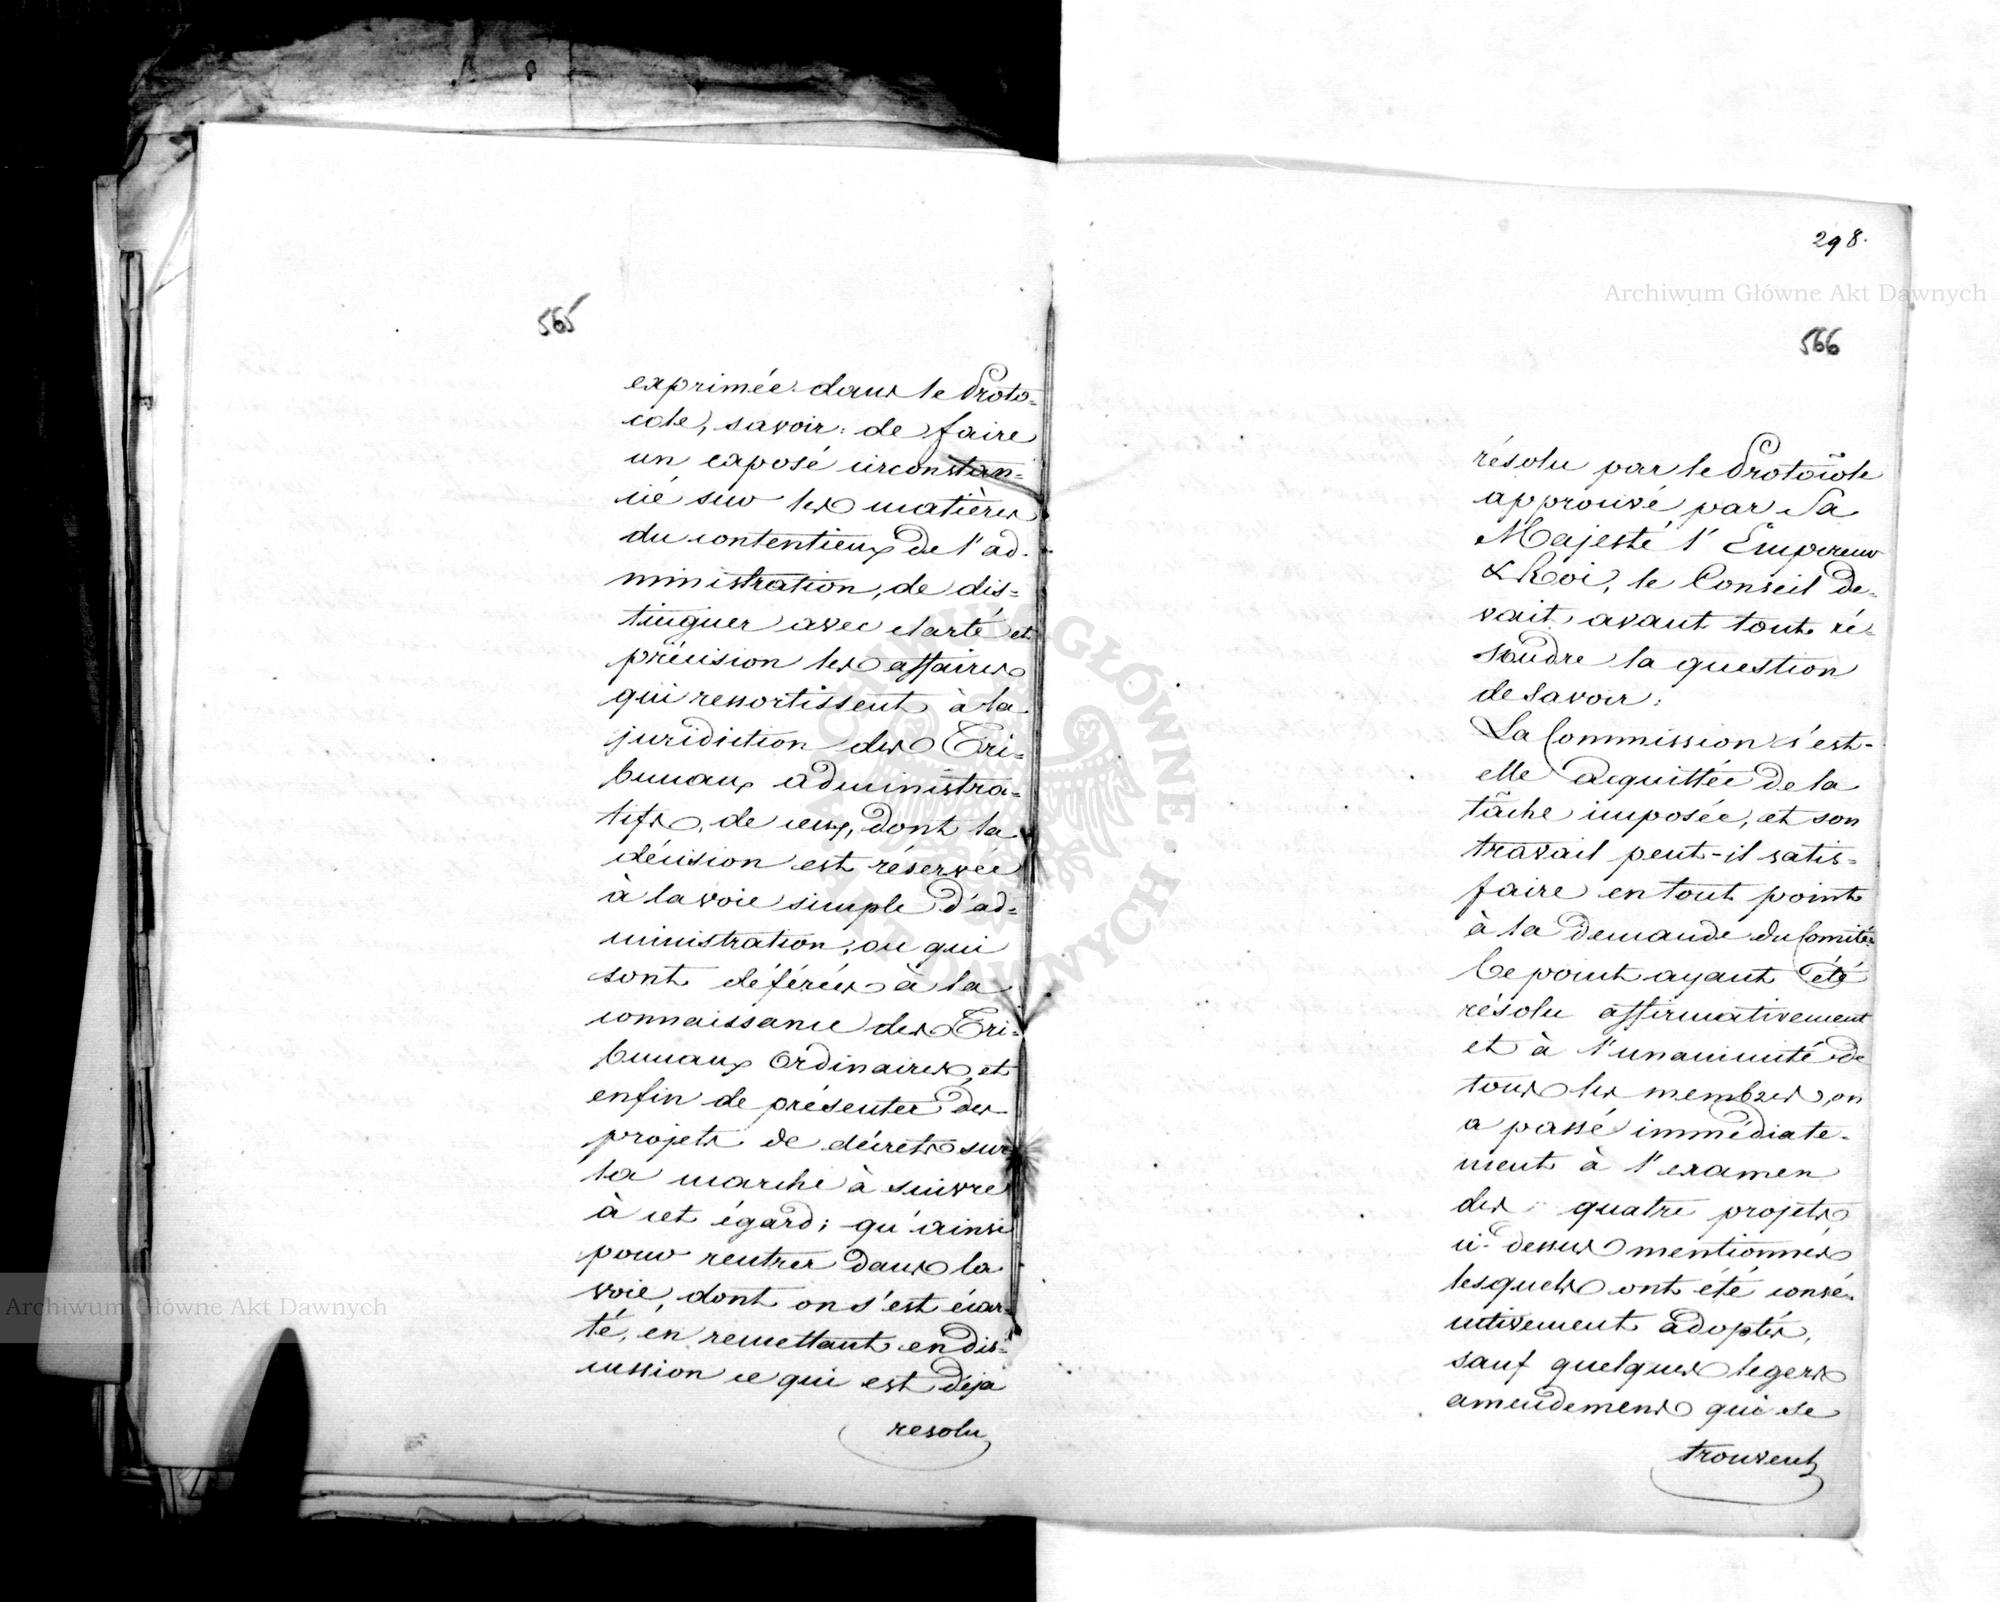 565
exprimée dans le Proto=
cole, savoir: de faire
un exposé circonstan=
cié sur les matières
du contentieux de l'ad-
ministration, de dis=
tinguer avec clarté et
précision les affaires
qui ressortissent à la
juridiction des Tri=
bunaux administra=
tifs, de ceux, dont la
décision est réservée
à la voie simple d'ad=
ministration, ou qui
sont déférées à la
connaissance des Tri=
bunaux Ordinaires, et
enfin de présenter des
projets de décrets sur
la marche à suivre
à cet égard; qu'ainsi
pour rentrer dans la
voie, dont on s'est écar=
té, en remettant en dis=
cussion ce qui est déja
resolu
298.
566
résolu par le Protocole
approuvé par Sa
Majesté l'Empereur
& Roi, le Conseil de=
vait avant tout ré=
soudre la question
de savoir:
La Commission s'est-
elle acquittée de la
tâche imposée, et son
travail peut-il satis=
faire en tout point
à la demande du Comité.
Ce point ayant été
résolu affirmativement
et à l'unanimité de
tous les membres, on
a passé immédiate-
ment à l'examen
des quatre projets
ci-dessus mentionnés
lesquels ont été consé-
cutivement adoptés,
sauf quelques legers
amendemens qui se
trouvent
Archiwum Główne Akt Dawnych
Archiwum Główne Akt Dawnych
ARCHIWUM GŁÓWNE AKT DAWNYCH